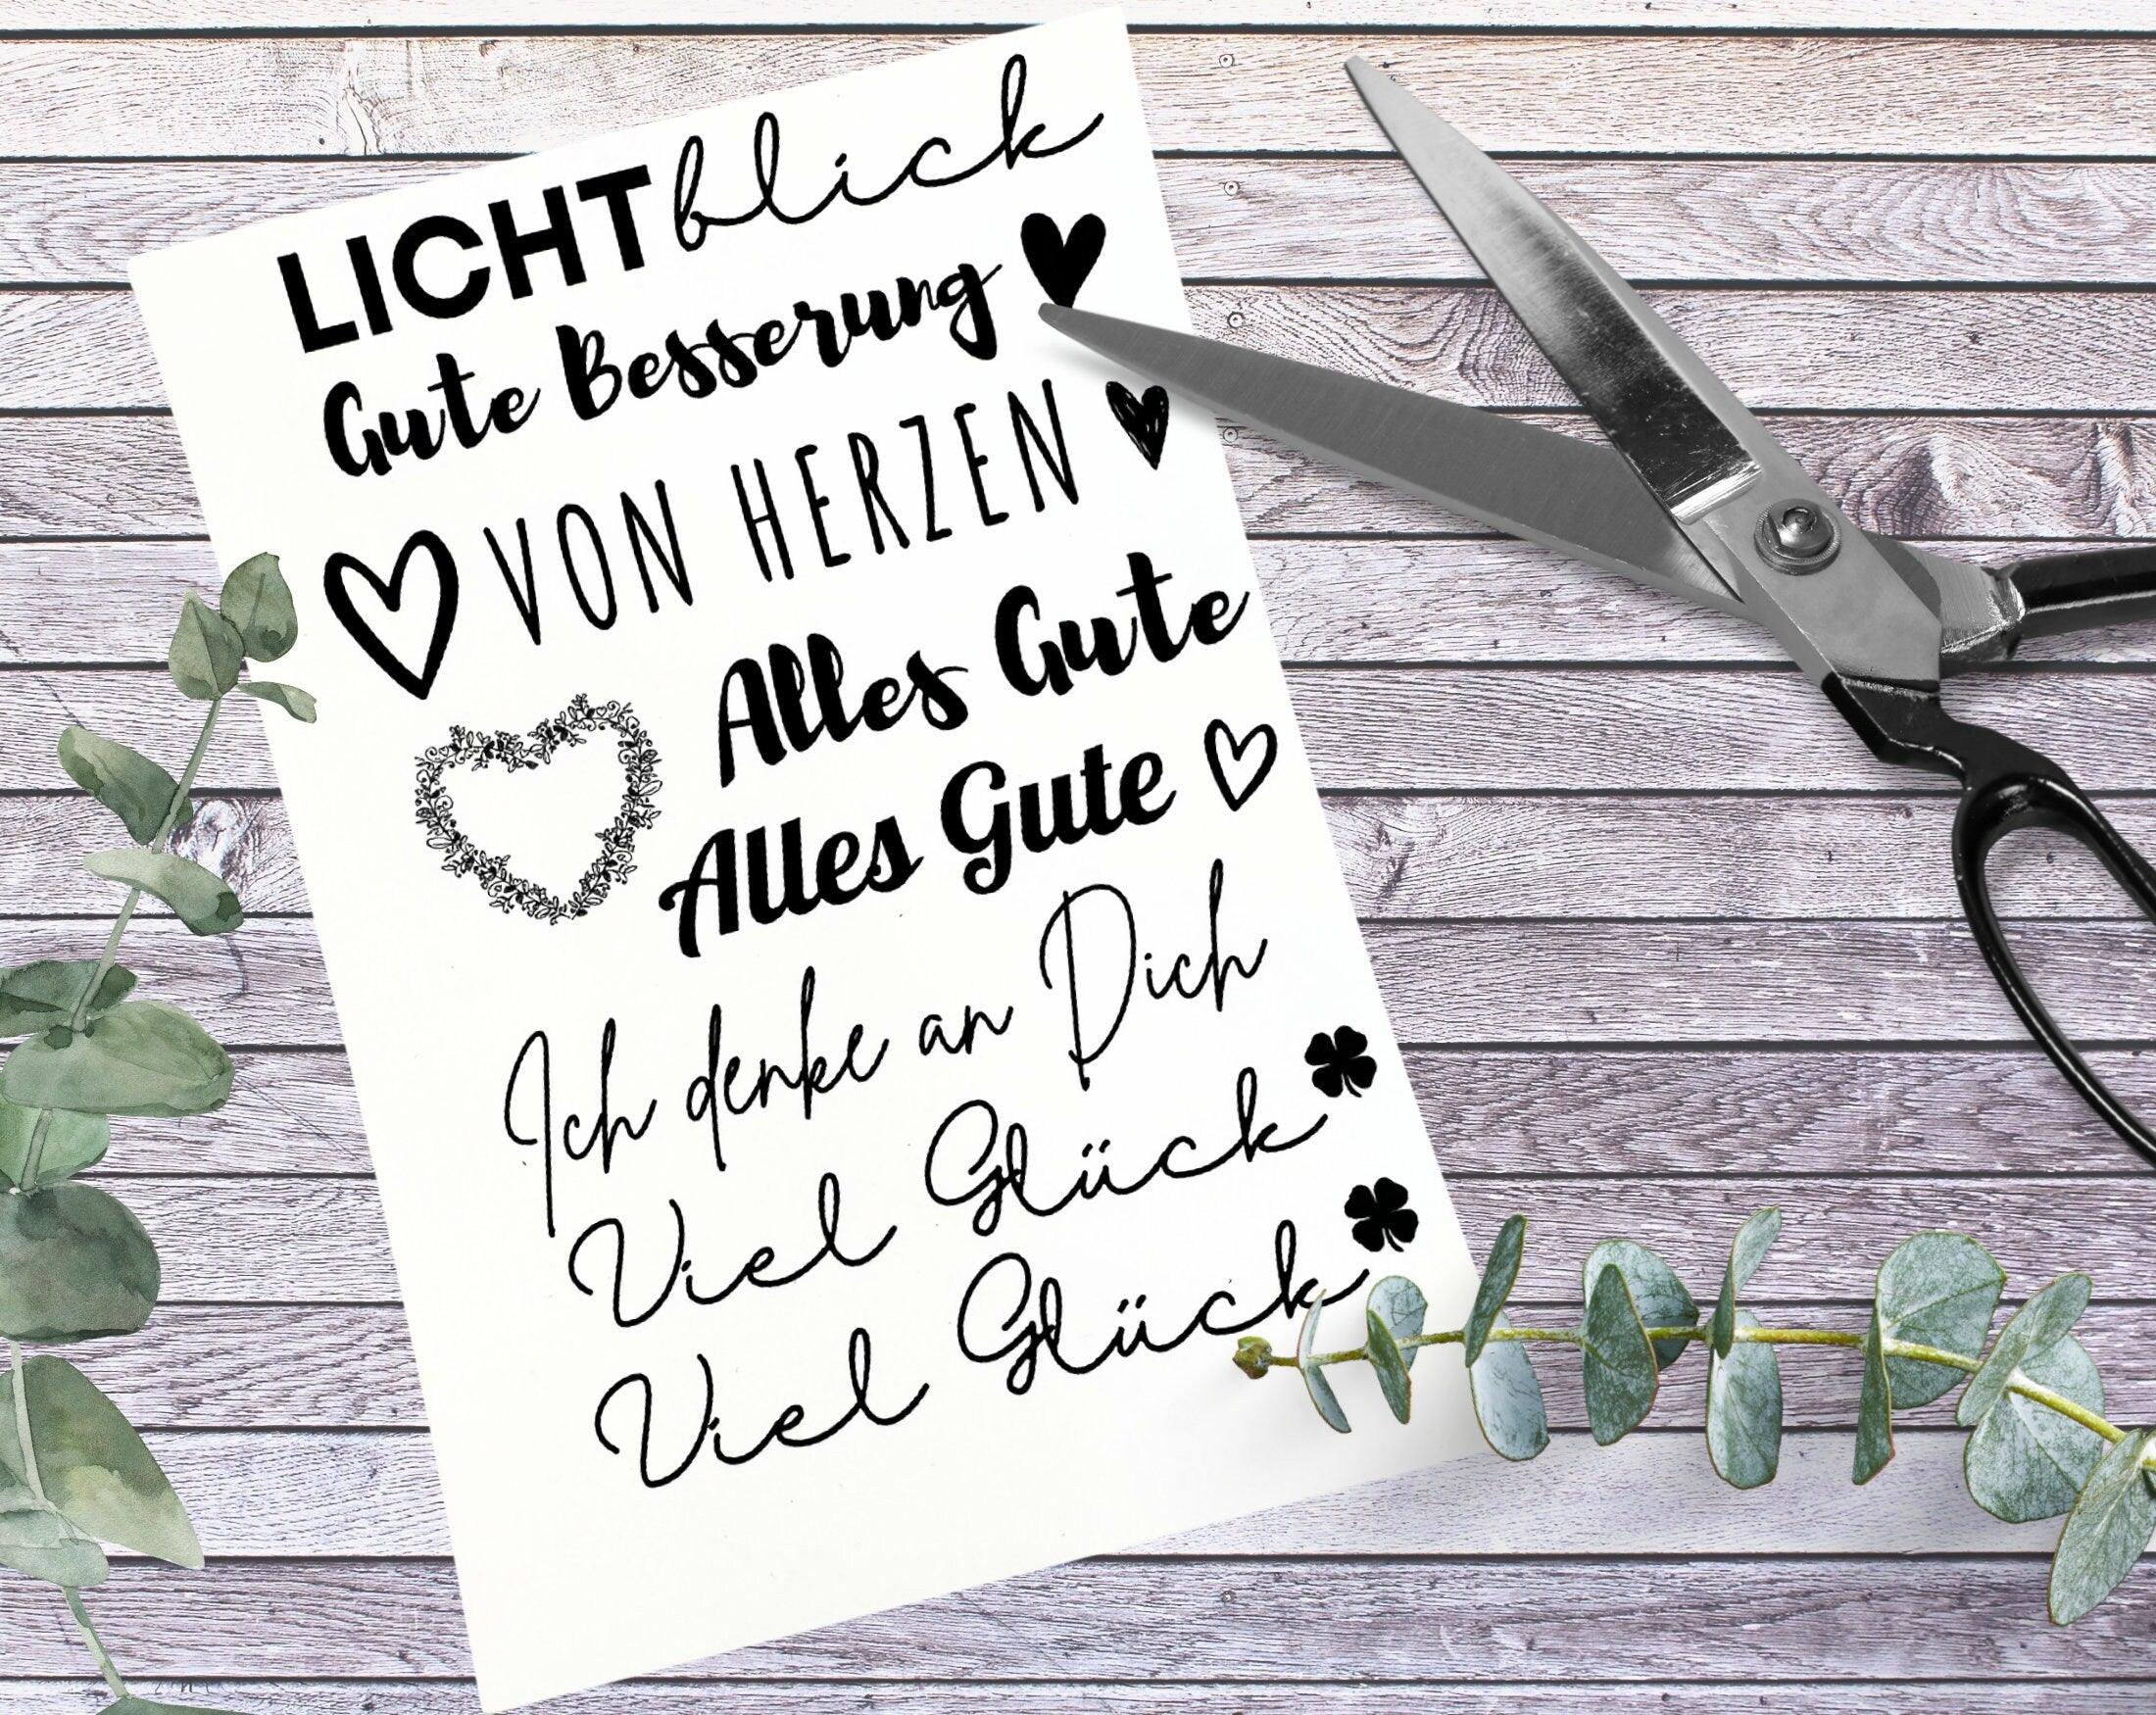 LICHTblick
Gute Besserung
VON HERZEN
Alles Gute
Alles Gute
Ich denke an Dich
Viel Glück
Viel Glück